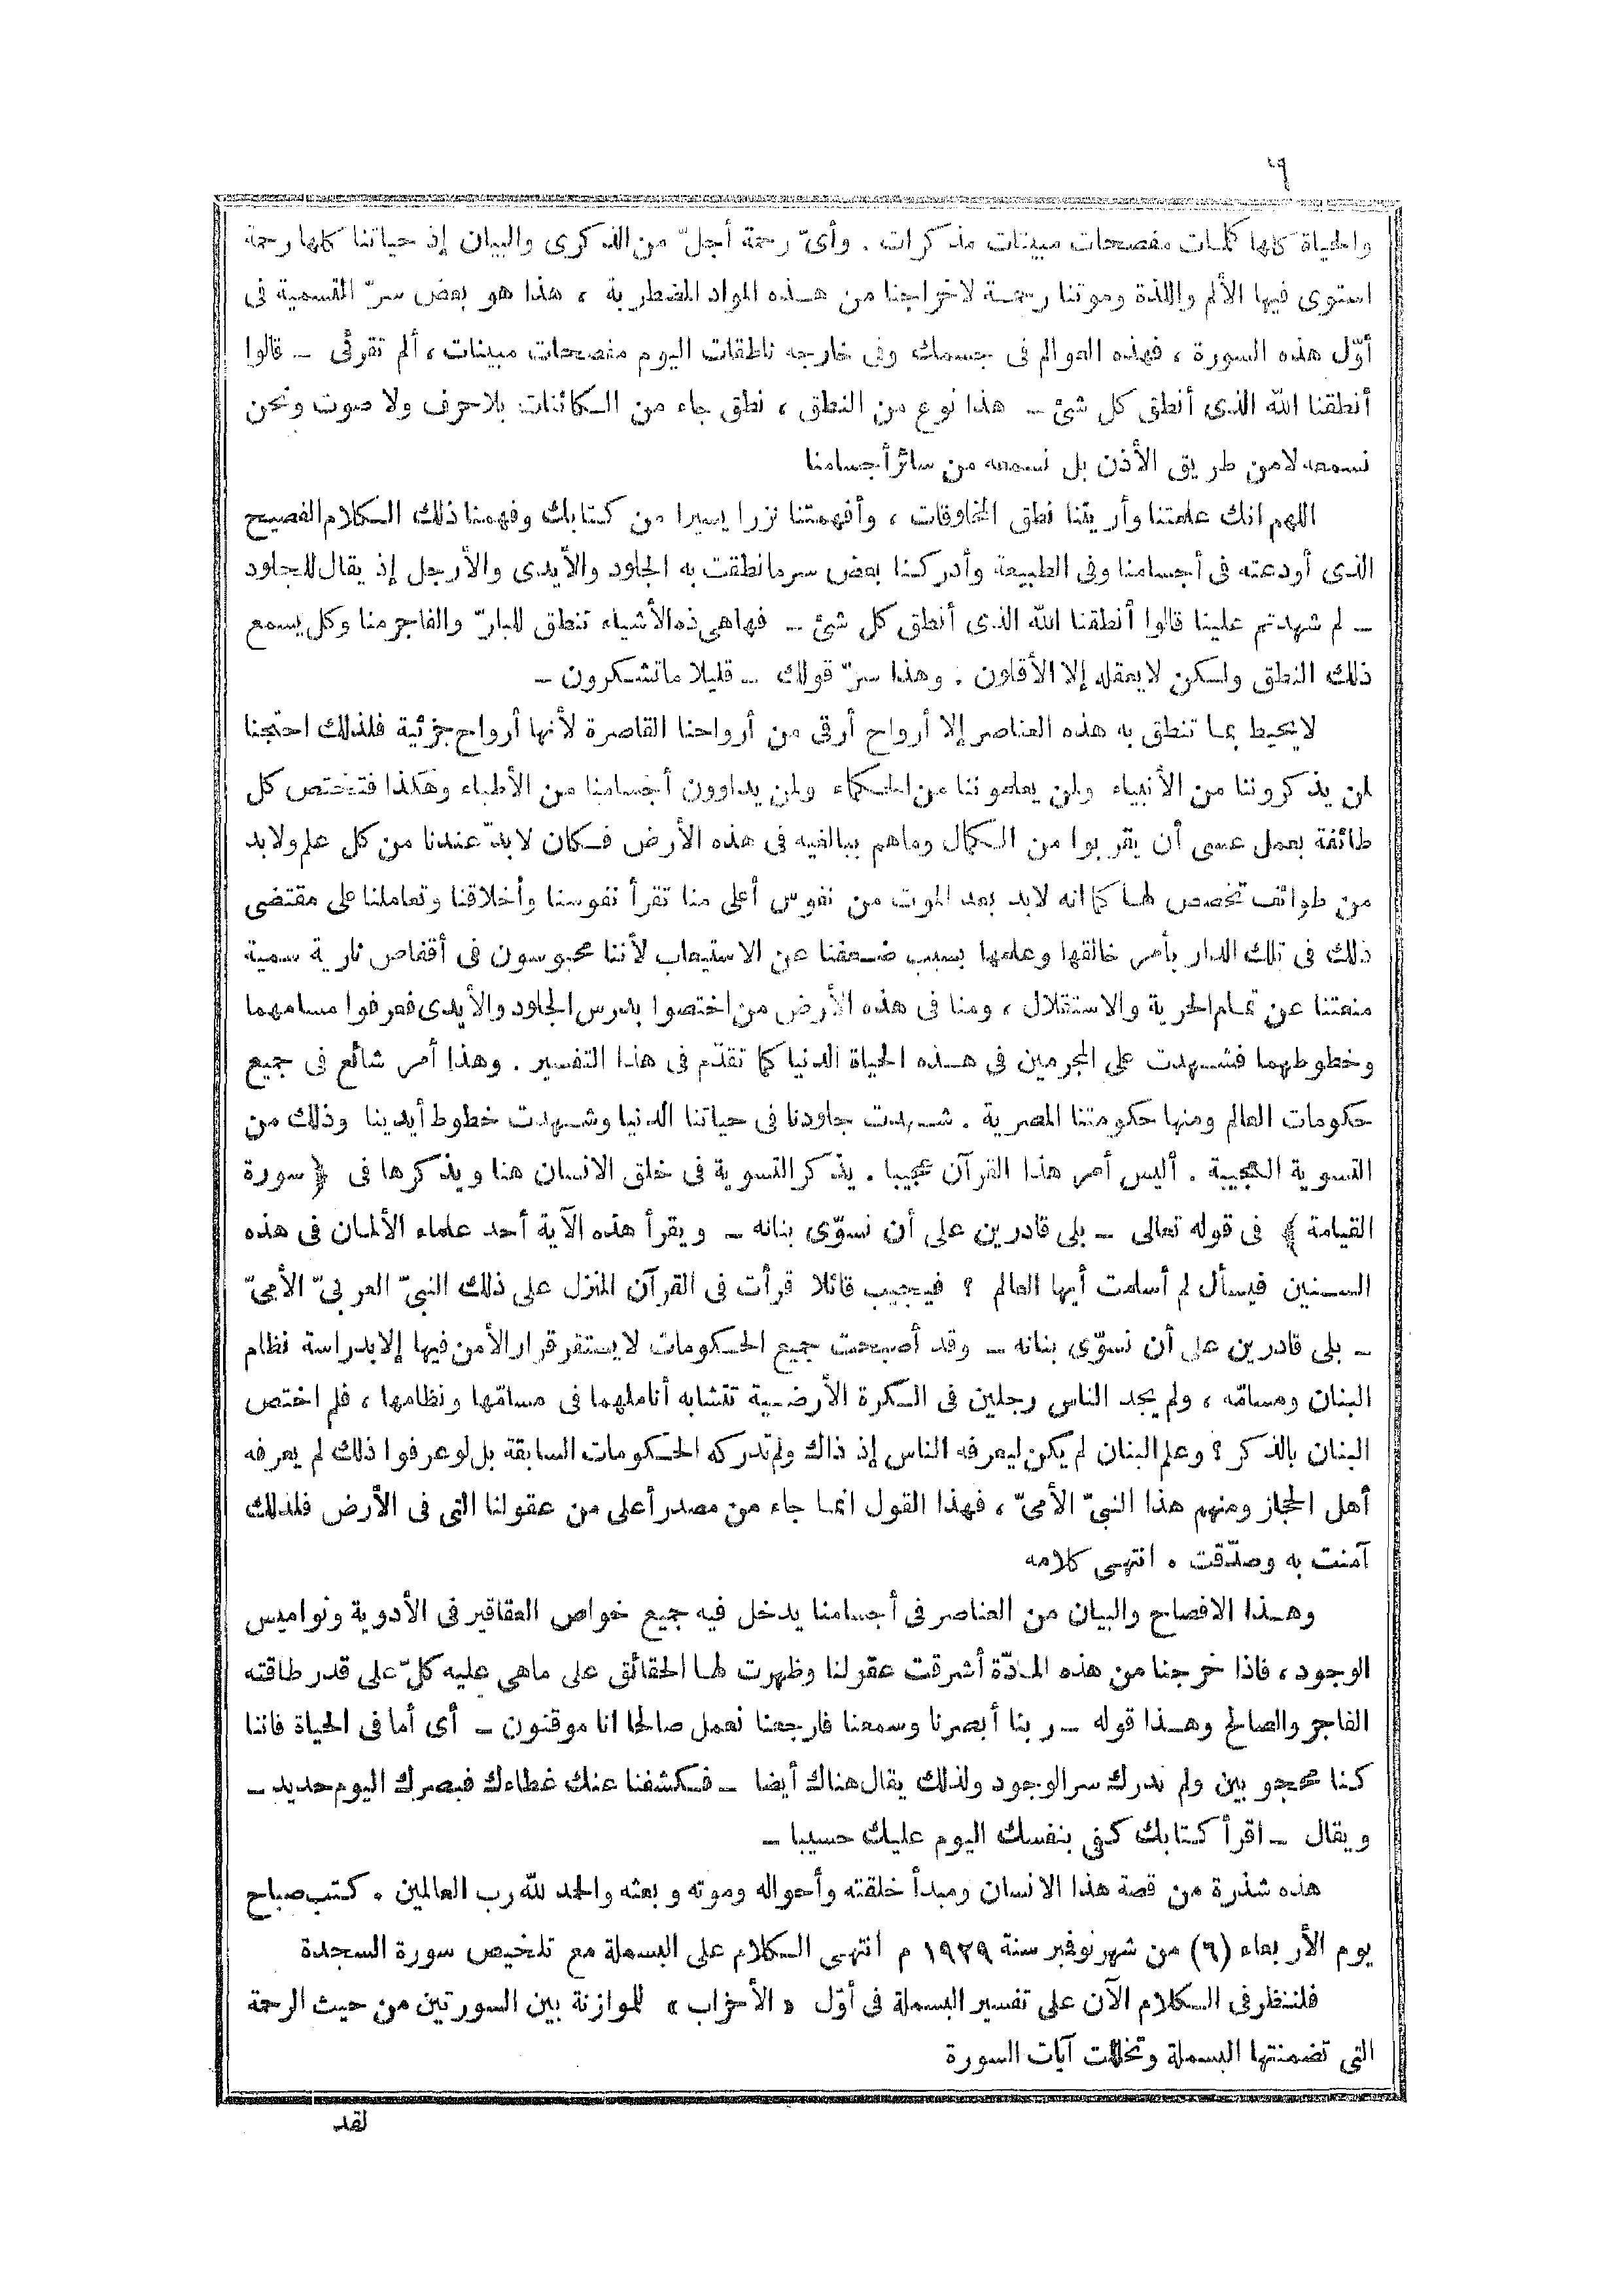 والحياة كلها كلمات مفصحات مبينات مذكرات . وأىّ رحمة أجلّ من الذكرى والبيان إذ حياتنا كلها رحمة
استوى فيها الألم واللذة وموتنا رحمة لاخراجنا من هذه المواد المضطربة ، هذا هو بعض سرّ التسمية فى
أوّل هذه السورة ، فهذه العوالم فى جسمك وفى خارجه ناطقات اليوم مفصحات مبينات ، ألم تقرئى ــ قالوا
أنطقنا الله الذى أنطق كل شئ ــ هذا نوع من النطق ، نطق جاء من الكائنات بلا حرف ولا صوت ونحن
نسمعه لا من طريق الأذن بل نسمعه من سائر أجسامنا
اللهم انك علمتنا وأريتنا نطق المخلوقات ، وأفهمتنا نزرا يسيرا من كتابك وفهمنا ذلك الكلام الفصيح
الذى أودعته فى أجسامنا وفى الطبيعة وأدركنا بعض سر ما نطقت به الجلود والأيدى والأرجل إذ يقال للجلود
ــ لم شهدتم علينا قالوا أنطقنا الله الذى أنطق كل شئ ــ فها هى ذه الأشياء تنطق للبارّ والفاجر منا وكل يسمع
ذلك النطق ولكن لا يعقله إلا الأقلون . وهذا سرّ قولك ــ قليلا ما تشكرون ــ
لا يحيط بما تنطق به هذه العناصر إلا أرواح أرقى من أرواحنا القاصرة لأنها أرواح جزئية فلذلك احتجنا
لمن يذكروننا من الأنبياء ولمن يعلموننا من الحكماء ولمن يداوون أجسامنا من الأطباء وهكذا فتختص كل
طائفة بعمل عسى أن يقربوا من الكمال وماهم ببالغيه فى هذه الأرض فكان لا بدّ عندنا من كل علم ولا بد
من طوائف تخصص لها كما انه لابد بعد الموت من نفوس أعلى منا تقرأ نفوسنا وأخلاقنا وتعاملنا على مقتضى
ذلك فى تلك الدار بأمر خالقها وعلمها بسبب ضعفنا عن الاستيعاب لأننا محبوسون فى أقفاص نارية سمية
منعتنا عن تمام الحرية والاستقلال ، ومنا فى هذه الأرض من اختصوا بدرس الجلود والأيدى فعرفوا مسامهما
وخطوطهما فشهدت على المجرمين فى هذه الحياة الدنيا كما تقدّم فى هذا التفسير . وهذا أمر شائع فى جميع
حكومات العالم ومنها حكومتنا المصرية . شهدت جلودنا فى حياتنا الدنيا وشهدت خطوط أيدينا وذلك من
التسوية العجيبة . أليس أمر هذا القرآن عجيبا . يذكر التسوية فى خلق الانسان هنا ويذكرها فى ﴿ سورة
القيامة ﴾ فى قوله تعالى ــ بلى قادرين على أن نسوّى بنانه ــ ويقرأ هذه الآية أحد علماء الألمان فى هذه
السنين فيسأل لم أسلمت أيها العالم ؟ فيجيب قائلا قرأت فى القرآن المنزل على ذلك النبىّ العربىّ الأمىّ
ــ بلى قادرين على أن نسوّى بنانه ــ وقد أصبحت جميع الحكومات لا يستقر قرار الأمن فيها إلا بدراسة نظام
البنان ومسامّه ، ولم يجد الناس رجلين فى الكرة الأرضية تتشابه أناملهما فى مسامّها ونظامها ، فلم اختص
البنان بالذكر ؟ وعلم البنان لم يكن ليعرفه الناس إذ ذاك ولم تدركه الحكومات السابقة بل لو عرفوا ذلك لم يعرفه
أهل الحجاز ومنهم هذا النبىّ الأمىّ ، فهذا القول انما جاء من مصدر أعلى من عقولنا التى فى الأرض فلذلك
آمنت به وصدّقت . انتهى كلامه
وهذا الافصاح والبيان من العناصر فى أجسامنا يدخل فيه جميع خواص العقاقير فى الأدوية ونواميس
الوجود ، فاذا خرجنا من هذه المادّة أشرقت عقولنا وظهرت لها الحقائق على ماهى عليه كلّ على قدر طاقته
الفاجر والصالح وهذا قوله ــ ربنا أبصرنا وسمعنا فارجعنا نعمل صالحا انا موقنون ــ أى أما فى الحياة فاننا
كنا محجوبين ولم ندرك سر الوجود ولذلك يقال هناك أيضا ــ فكشفنا عنك غطاءك فبصرك اليوم حديد ــ
ويقال ــ اقرأ كتابك كفى بنفسك اليوم عليك حسيبا ــ
هذه شذرة من قصة هذا الانسان ومبدأ خلقته وأحواله وموته وبعثه والحمد لله رب العالمين . كتب صباح
يوم الأربعاء (٦) من شهر نوفمبر سنة ١٩٢٩ م انتهى الكلام على البسملة مع تلخيص سورة السجدة
فلننظر فى الكلام الآن على تفسير البسملة فى أوّل « الأحزاب » للموازنة بين السورتين من حيث الرحمة
التى تضمنتها البسملة وتخللت آيات السورة
لقد